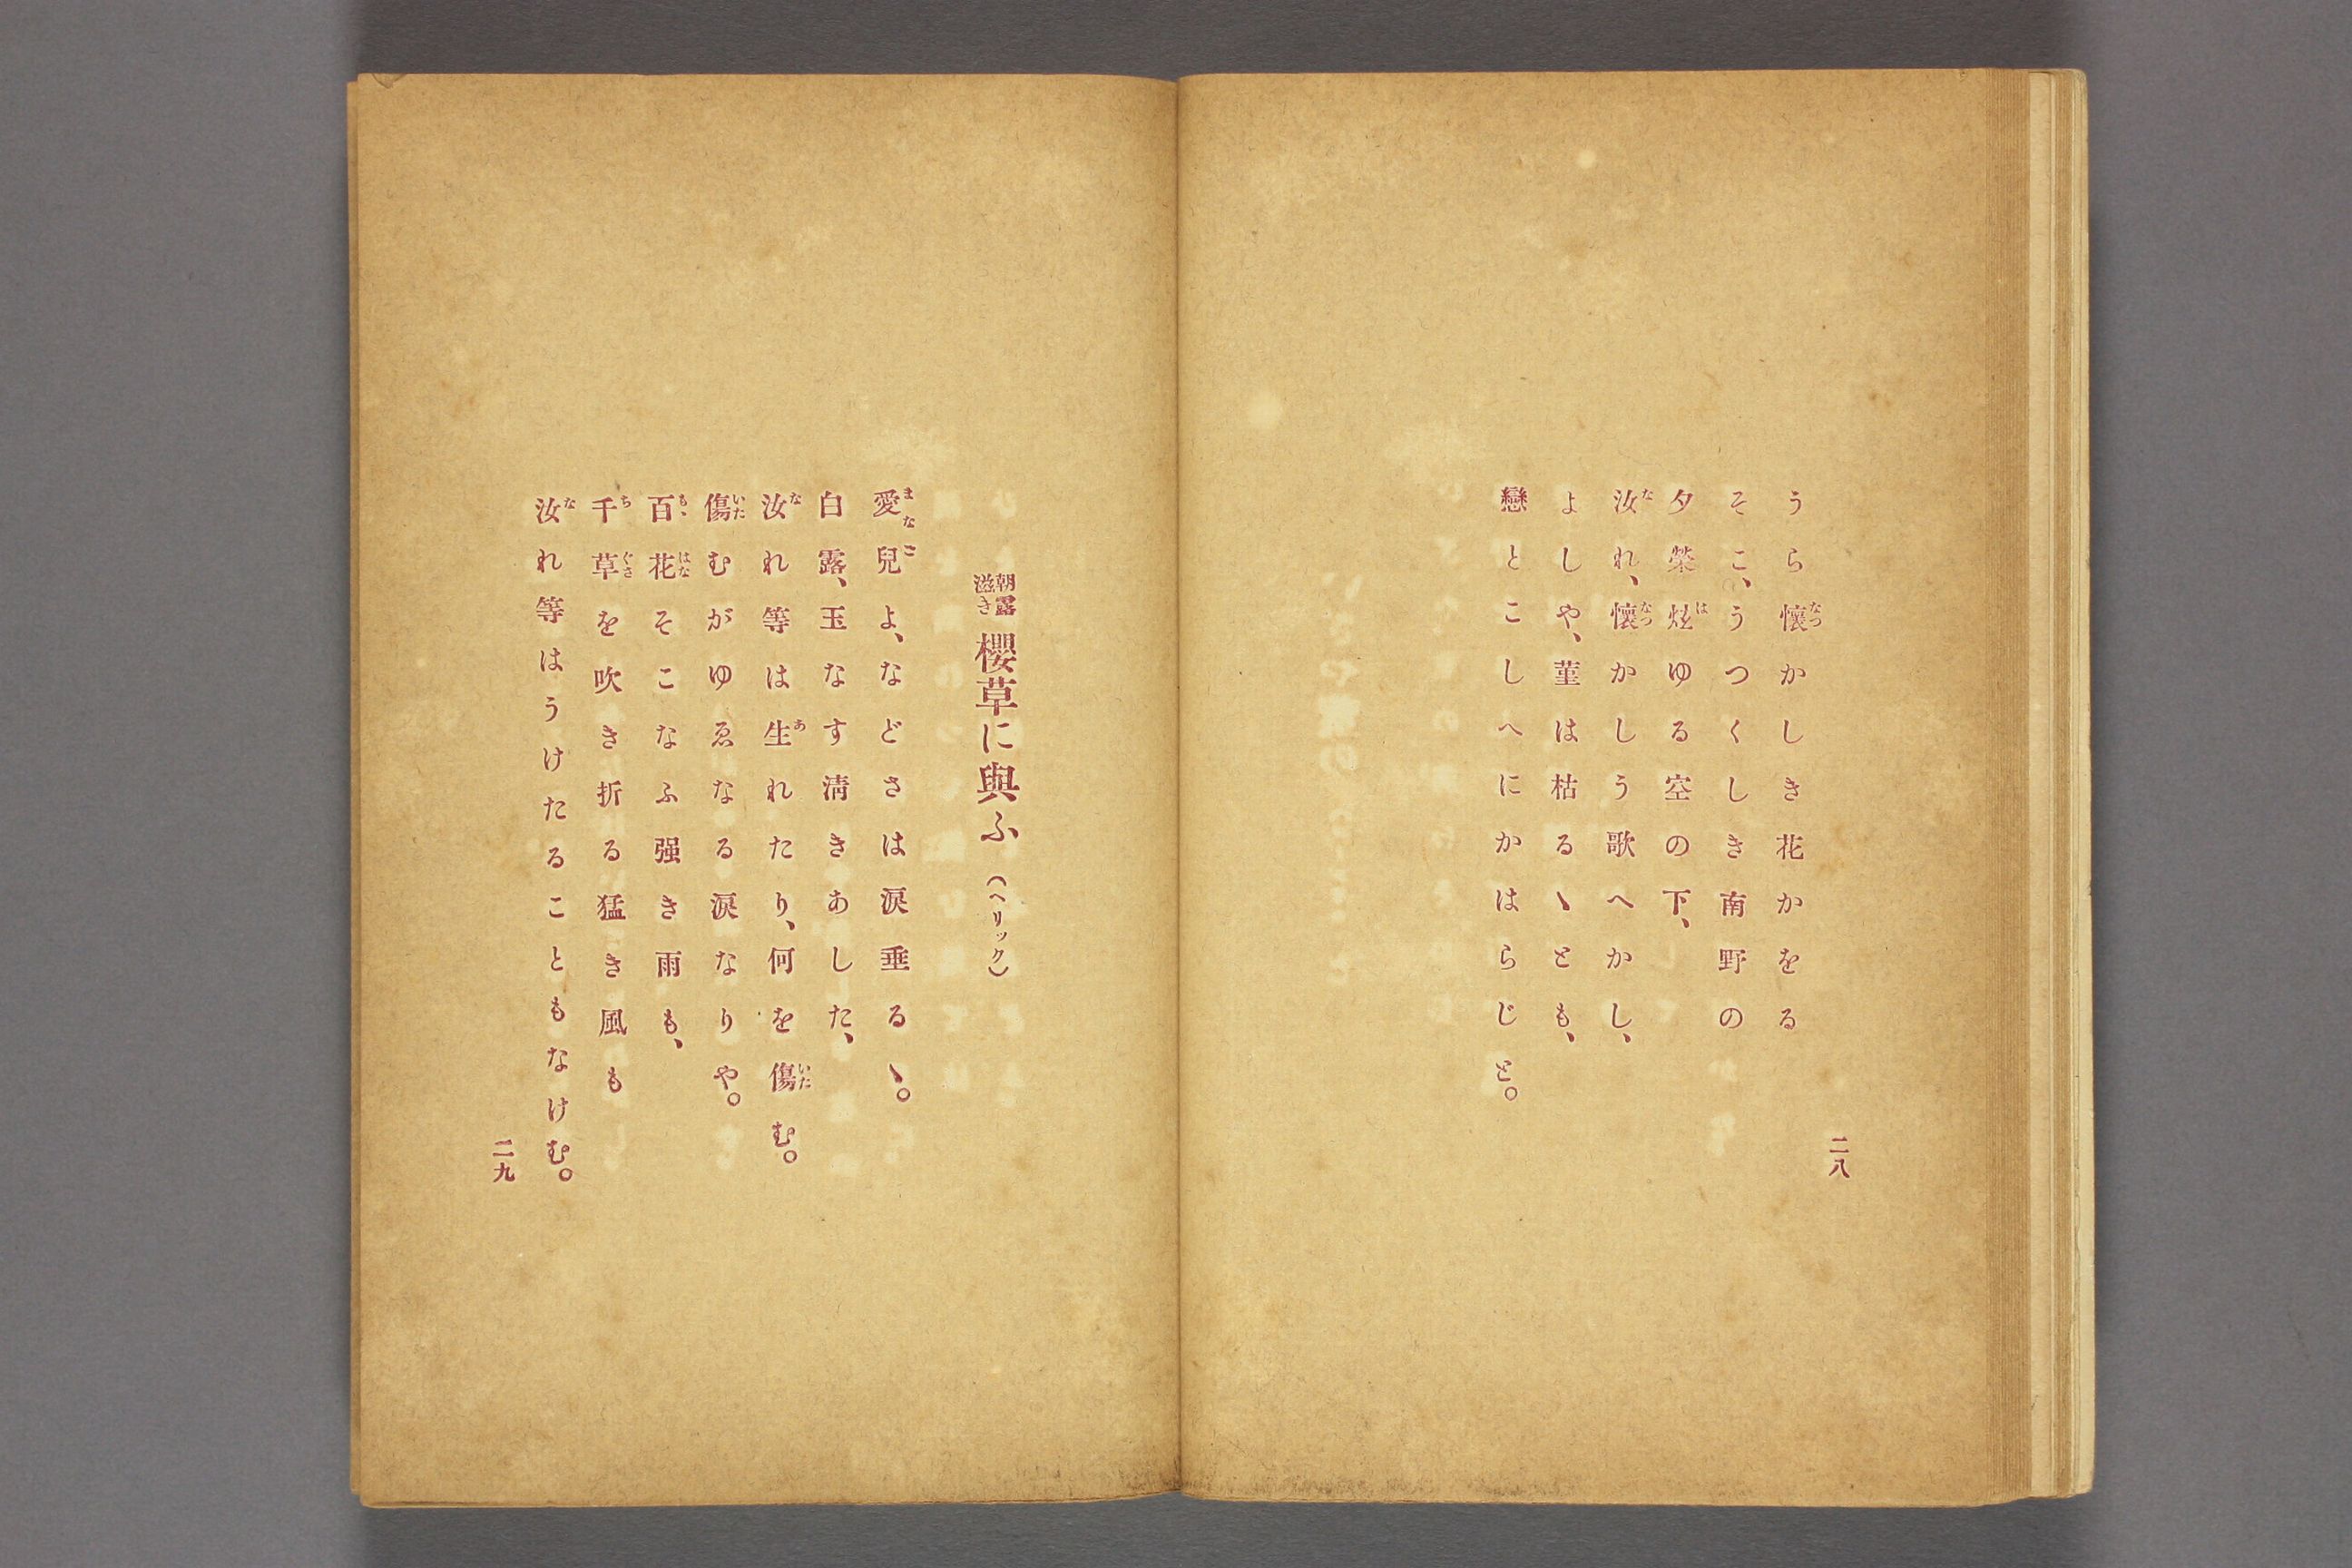 うら懷かしき花かをる
そこ、うつくしき南野の
夕榮炫ゆる空の下、
汝れ、懷かしう歌へかし、
よしや、菫は枯るゝとも、
戀とこしへにかはらじと。
二八
朝露滋き 櫻草に與ふ (ヘリック)
愛兒よ、などさは涙垂るゝ。
白露、玉なす淸きあした、
汝れ等は生れたり、何を傷む。
傷むがゆゑなる涙なりや。
百花そこなふ强き雨も、
千草を吹き折る猛き風も
汝れ等はうけたることもなけむ。
二九